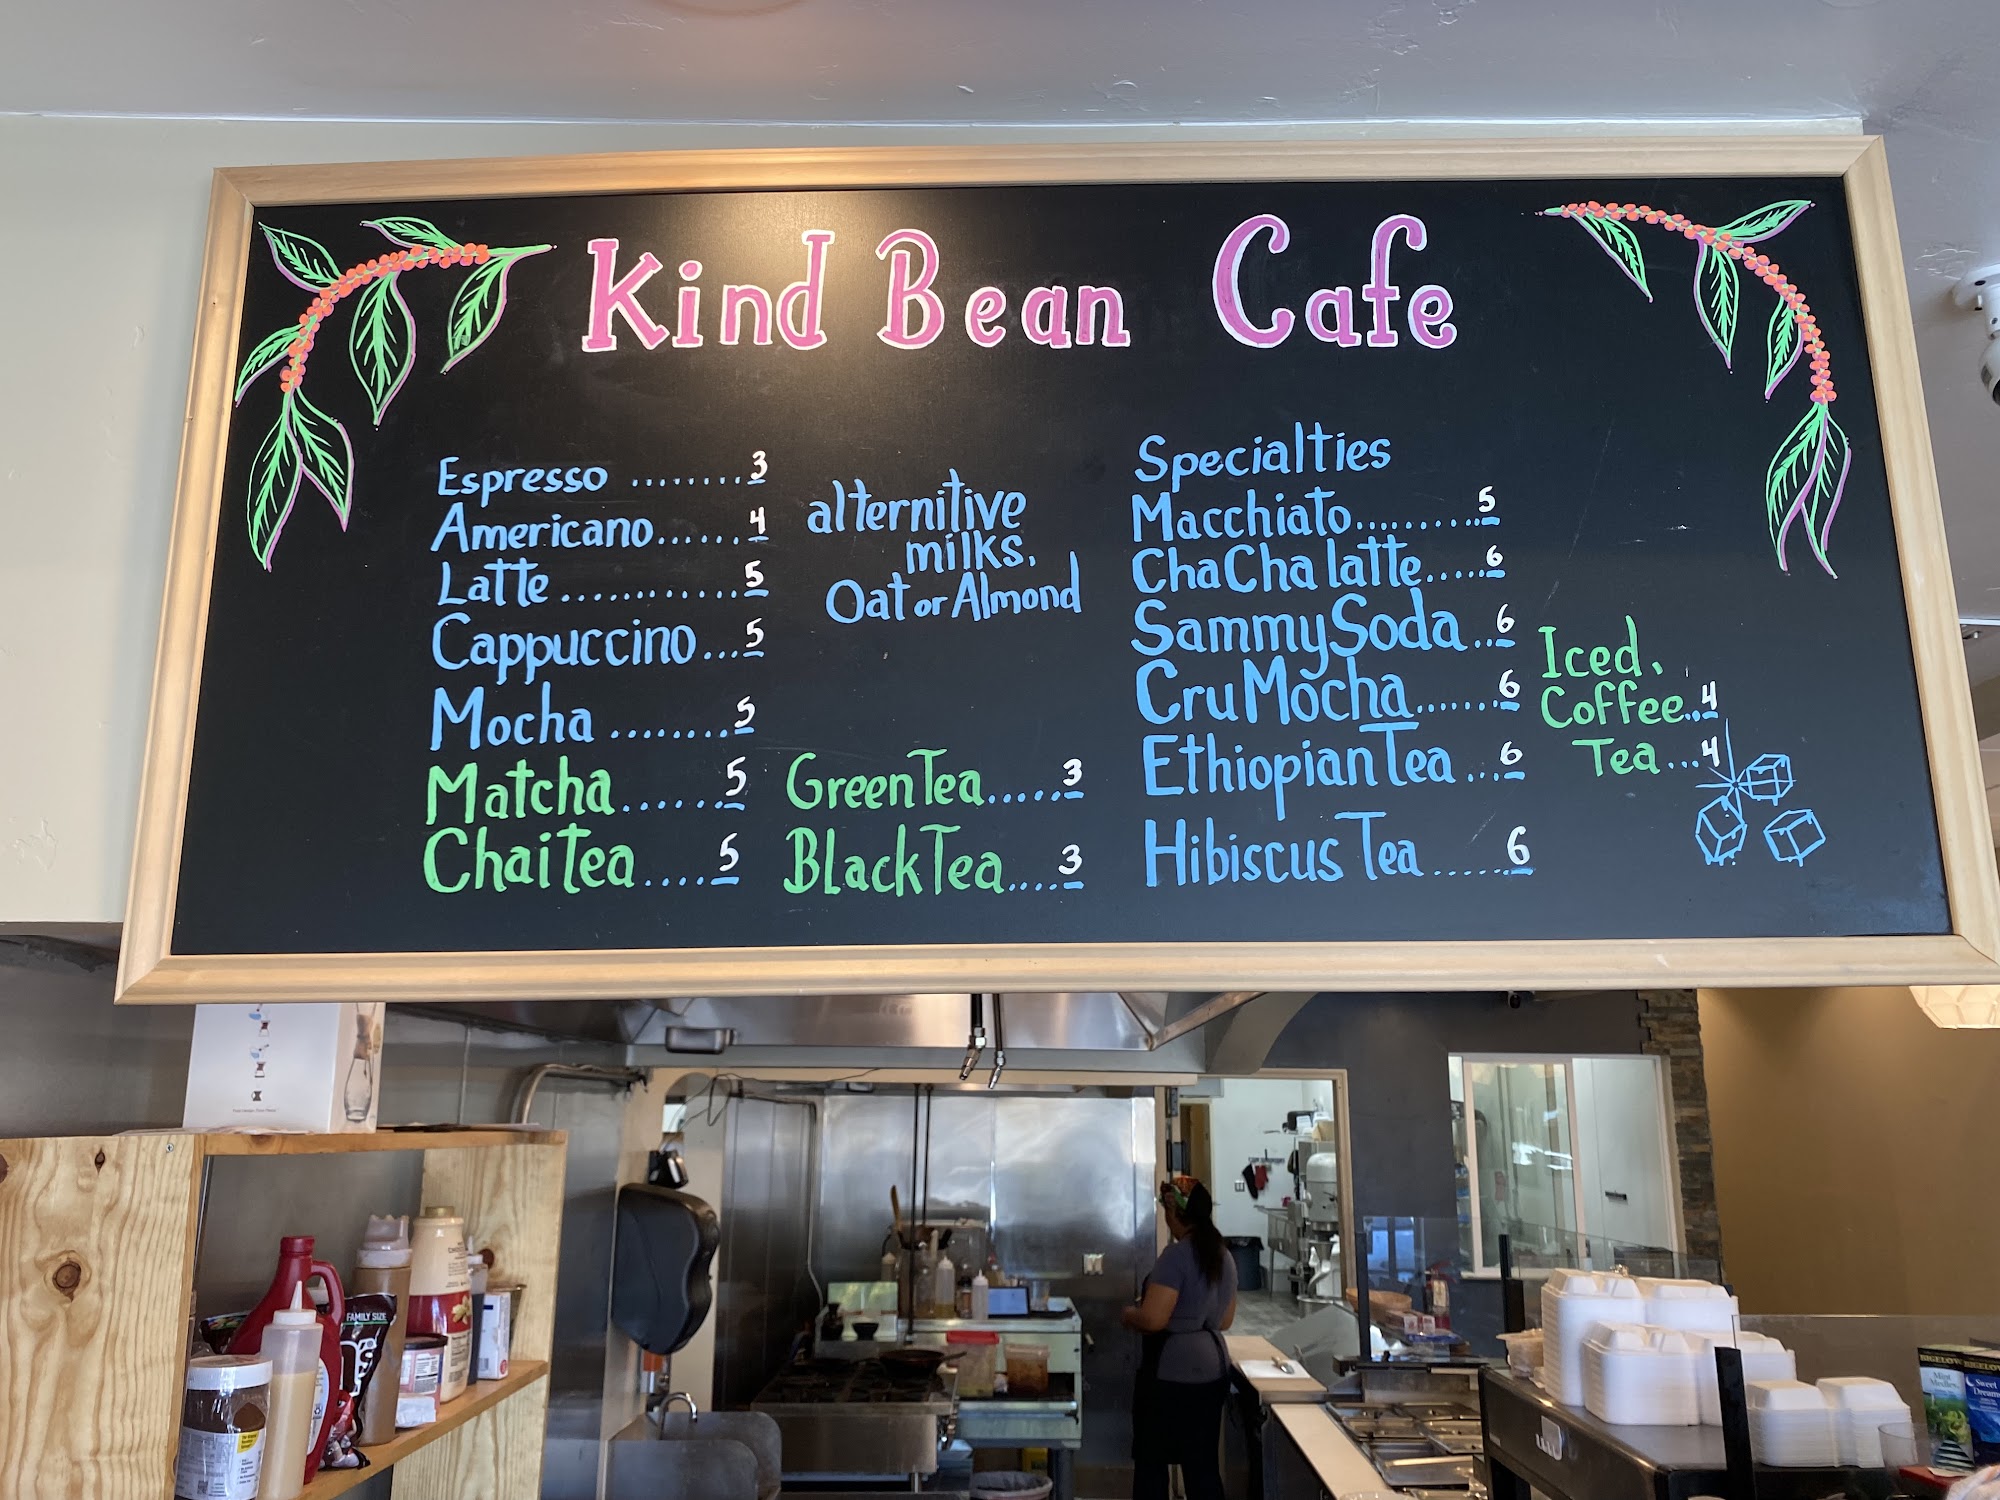 Kind Bean Cafe
Espresso ........ 3
Americano...... 4
Latte ............ 5
Cappuccino ... 5
Mocha ........ 5
Matcha ...... 5
Chai Tea .... 5
alternitive
milks.
Oat or Almond
Green Tea ..... 3
Black Tea .... 3
Specialties
Macchiato .......... 5
ChaCha latte ..... 6
Sammy Soda .. 6
Cru Mocha ....... 6
Ethiopian Tea ... 6
Hibiscus Tea ...... 6
Iced.
Coffee .. 4
Tea ... 4
FAMILY SIZE
BIGELOW
Mint
Medley
BIGELOW
Sweet
Dreams